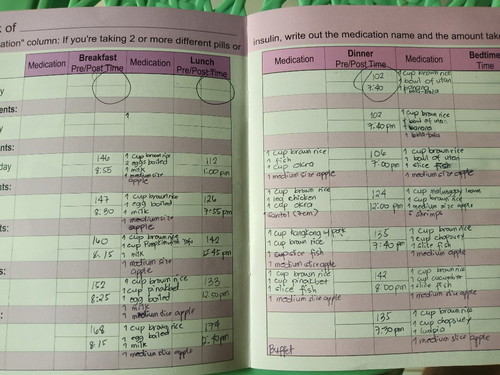 k of
ation" column: If you're taking 2 or more different pills or
Medication Breakfast Pre/Post Time Medication Lunch Pre/Post Time
y
ents:
y
146 1 cup brown rice 112
2 eggs boiled
day 8:55 1 milk 1:00 pm
1 medium size
apple
ts:
147 1 cup brown rice 126
1 egg boiled
8:30 1 milk
1 medium size
apple
ts:
160 1 cup brown rice 142
8:15 1 milk 12:45 pm
1 medium size
apple
s:
152 1 cup brown rice 133
1 cup pinakbet
8:25 1 egg boiled 12:50 pm
1 milk
1 medium size apple
:
168 1 cup brown rice 174
1 egg boiled
8:15 1 milk
1 medium size apple
insulin, write out the medication name and the amount take
Medication Dinner Pre/Post Time Medication Bedtim
Time
102 1 cup brown rice
1 bowl of utan
7:40 1 banana
102 1 cup brown rice
1 bowl of utan
7:40 pm 1 banana
1 cup brown rice 106 1 cup brown rice
1 fish 1 bowl of utan
1 cup okra 7:00 pm 1 slice fish
1 medium size apple 1 medium size apple
1 cup brown rice 124 1 cup malunggay leaves
1 leg chicken 1 cup brown rice
1 cup okra 12:00 pm 1 medium size apple
santol (7am) 5 shrimps
1 cup kangkong w/ pork 135 1 cup brown rice
1 cup brown rice 1 cup chopsuey
7:40 pm 1 slice fish
1 medium size apple apple
1 cup brown rice 142 1 cup brown rice
1 cup pinakbet 1 cup cucumber
1 slice fish 8:00 pm 1 slice fish
1 medium size apple 1 medium size apple
135 1 cup brown rice
1 cup chopsuey
7:30 pm 1 lumpia
Buffet 1 medium size apple